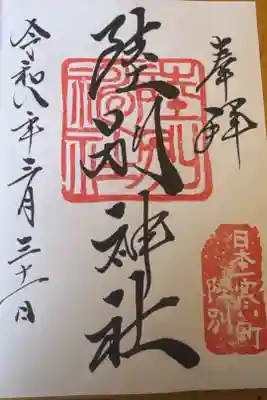 奉拝
陸別神社
日本一寒い町
陸別
令和八年三月三十一日